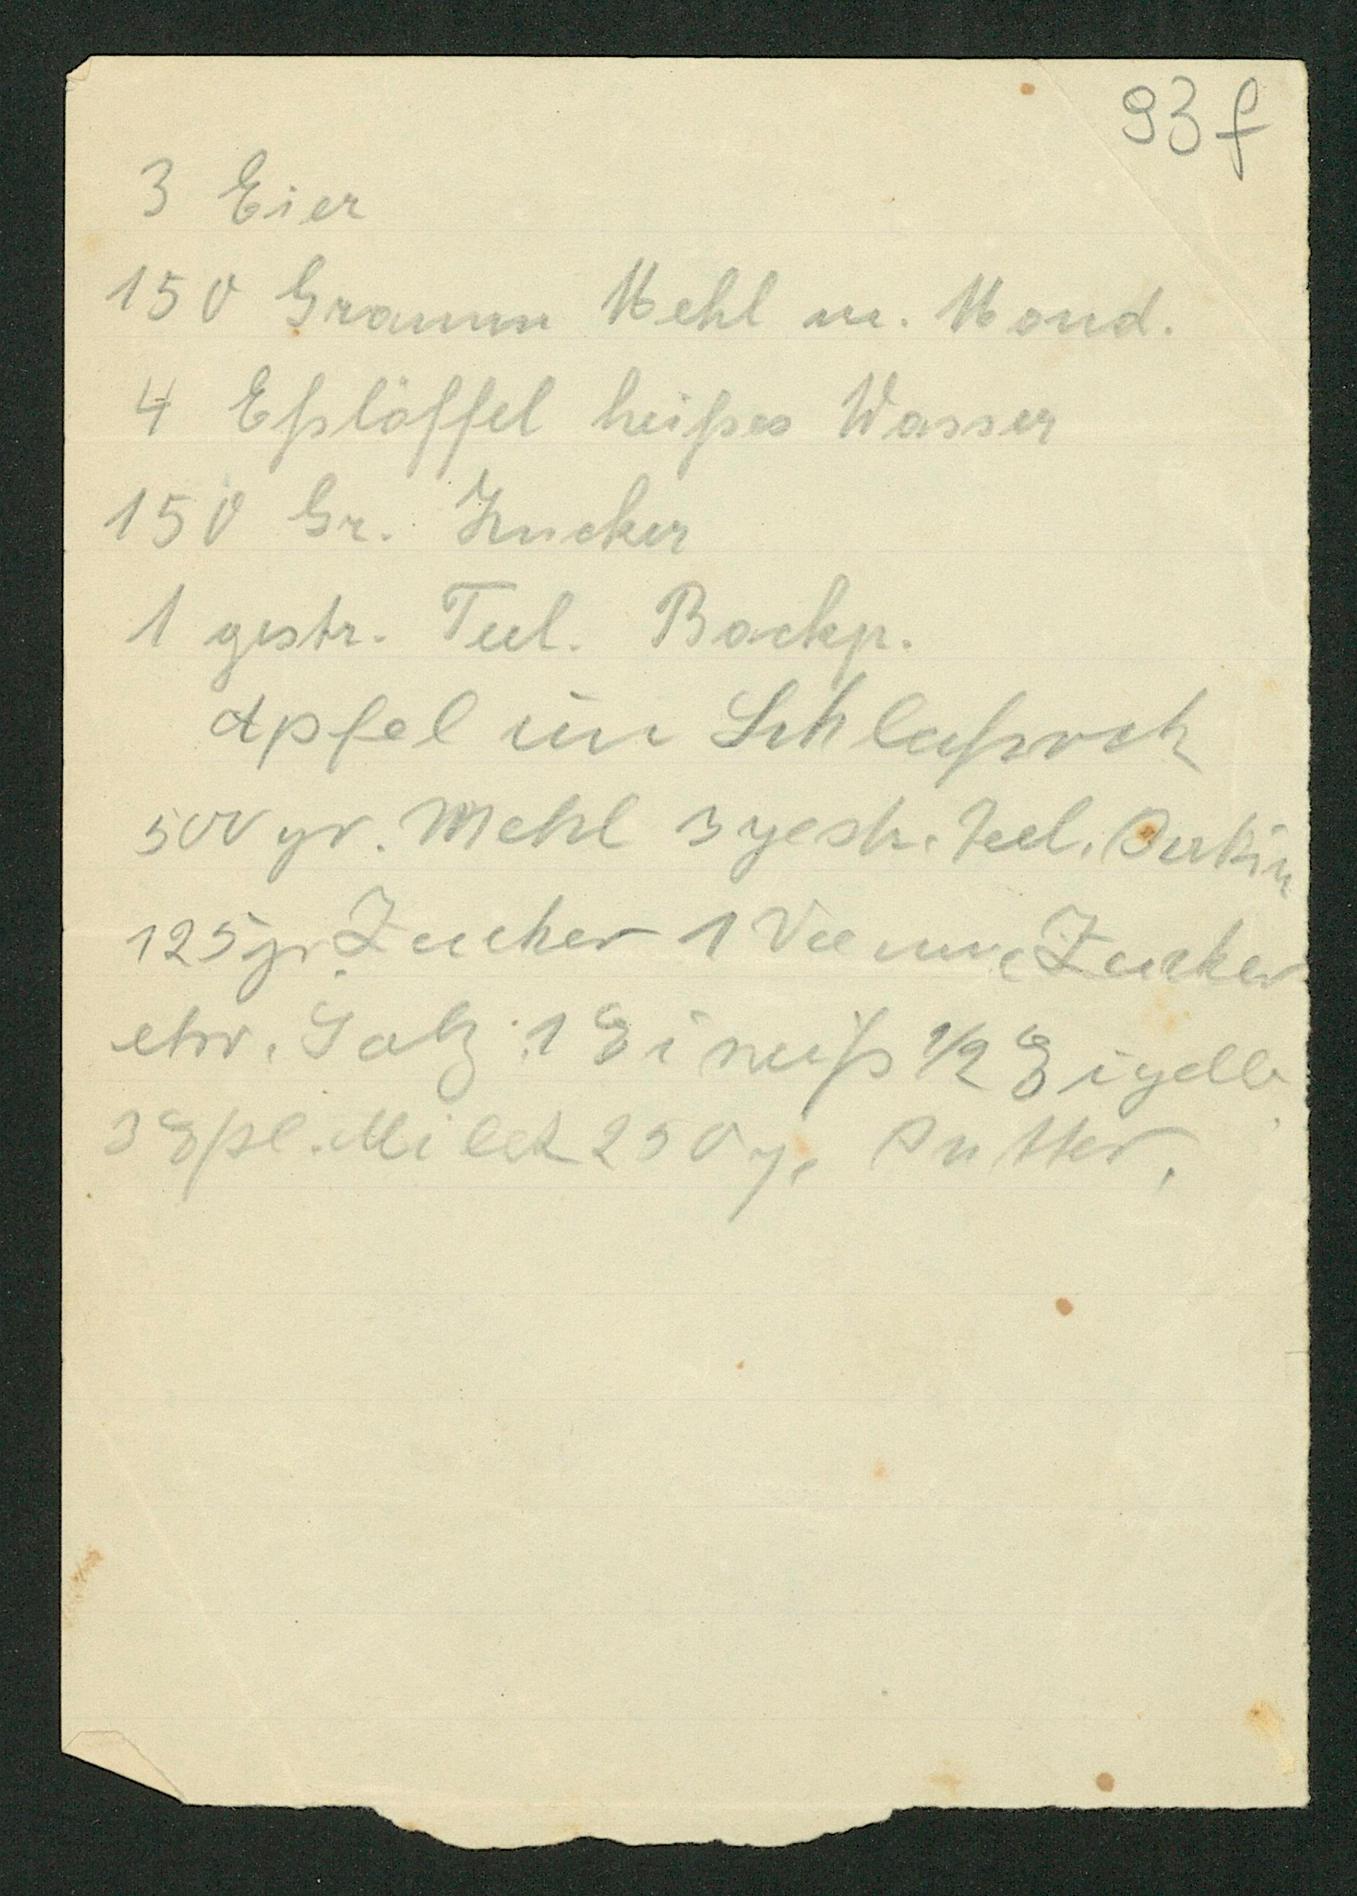 93f
3 Eier
150 Gramm Mehl u. Mond.
4 Eßlöffel heißes Wasser
150 Gr. Zucker
1 gestr. Teel. Backp.
Apfel im Schlafrock
500 gr. Mehl 3 gestr. Teel. Backin
125 gr Zucker 1 Zucker
etw. Salz 1 Eiweiß 1/2 Eigelb
3 Eßl. Milch 250 g. Butter.